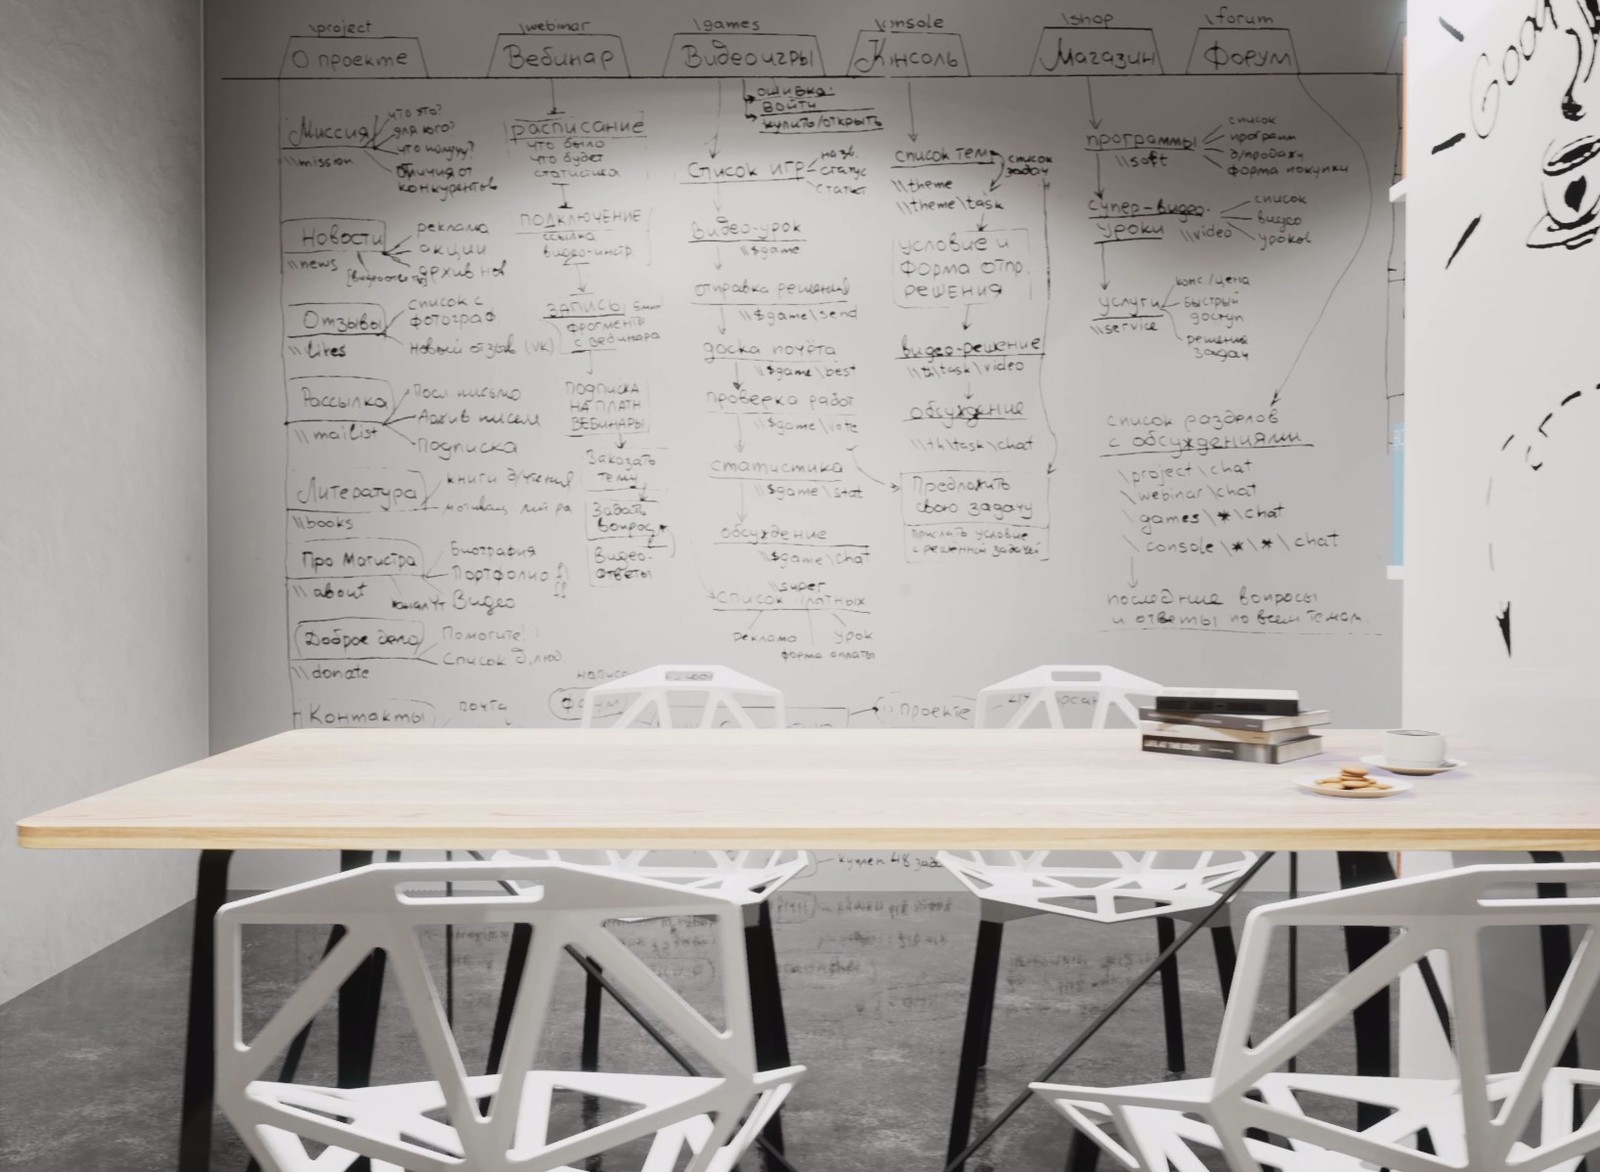 \project
О проекте
Миссия
что это?
для кого?
что получу?
Отличия от
конкурентов
\\mission
Новости
реклама
акции
архив нов
\\news
Отзывы
список с
фотограф
новый отзыв (VK)
\\likes
Рассылка
Посл письмо
Архив писем
Подписка
\\maillist
Литература
книги д/чтения
\\books
Про Магистра
Биография
Портфолио
Видео
\\about
Доброе дело
Помогите!
Список д.люд.
\\donate
Контакты
почта
\webinar
Вебинар
расписание
что было
что будет
статистика
ПОДКЛЮЧЕНИЕ
ссылка
видео-инстр.
ЗАПИСЬ
фрагменты
с вебинара
ПОДПИСКА
НА ПЛАТН
ВЕБИНАРЫ
Заказать
тему
Задать
вопрос
Видео-
ответы
\games
Видеоигры
ошибка:
войти
купить/открыть
Список игр
назв.
статус
статист
видео-урок
\\$game
отправка решений
\\$game\send
доска почёта
\\$game\best
проверка работ
\\$game\vote
статистика
\\$game\stat
обсуждение
\\$game\chat
\\super
Список платных
реклама
урок
форма оплаты
\console
Консоль
список тем
список
задач
\\theme
\\theme\task
условие и
форма отпр.
решения
видео-решение
\\th\task\video
обсуждение
\\th\task\chat
Предложить
свою задачу
прислать условие
с решением задачей
Проекте
\shop
Магазин
программы
список
программ
д/продажи
форма покупки
\\soft
супер-видео-
уроки
\\video
список
видео
уроков
услуги
конс/цена
быстрый
доступ
решения
задач
\\service
\forum
Форум
список разделов
с обсуждениями
\project\chat
\webinar\chat
\games\*\chat
\console\*\*\chat
последние вопросы
и ответы по всем темам.
Good